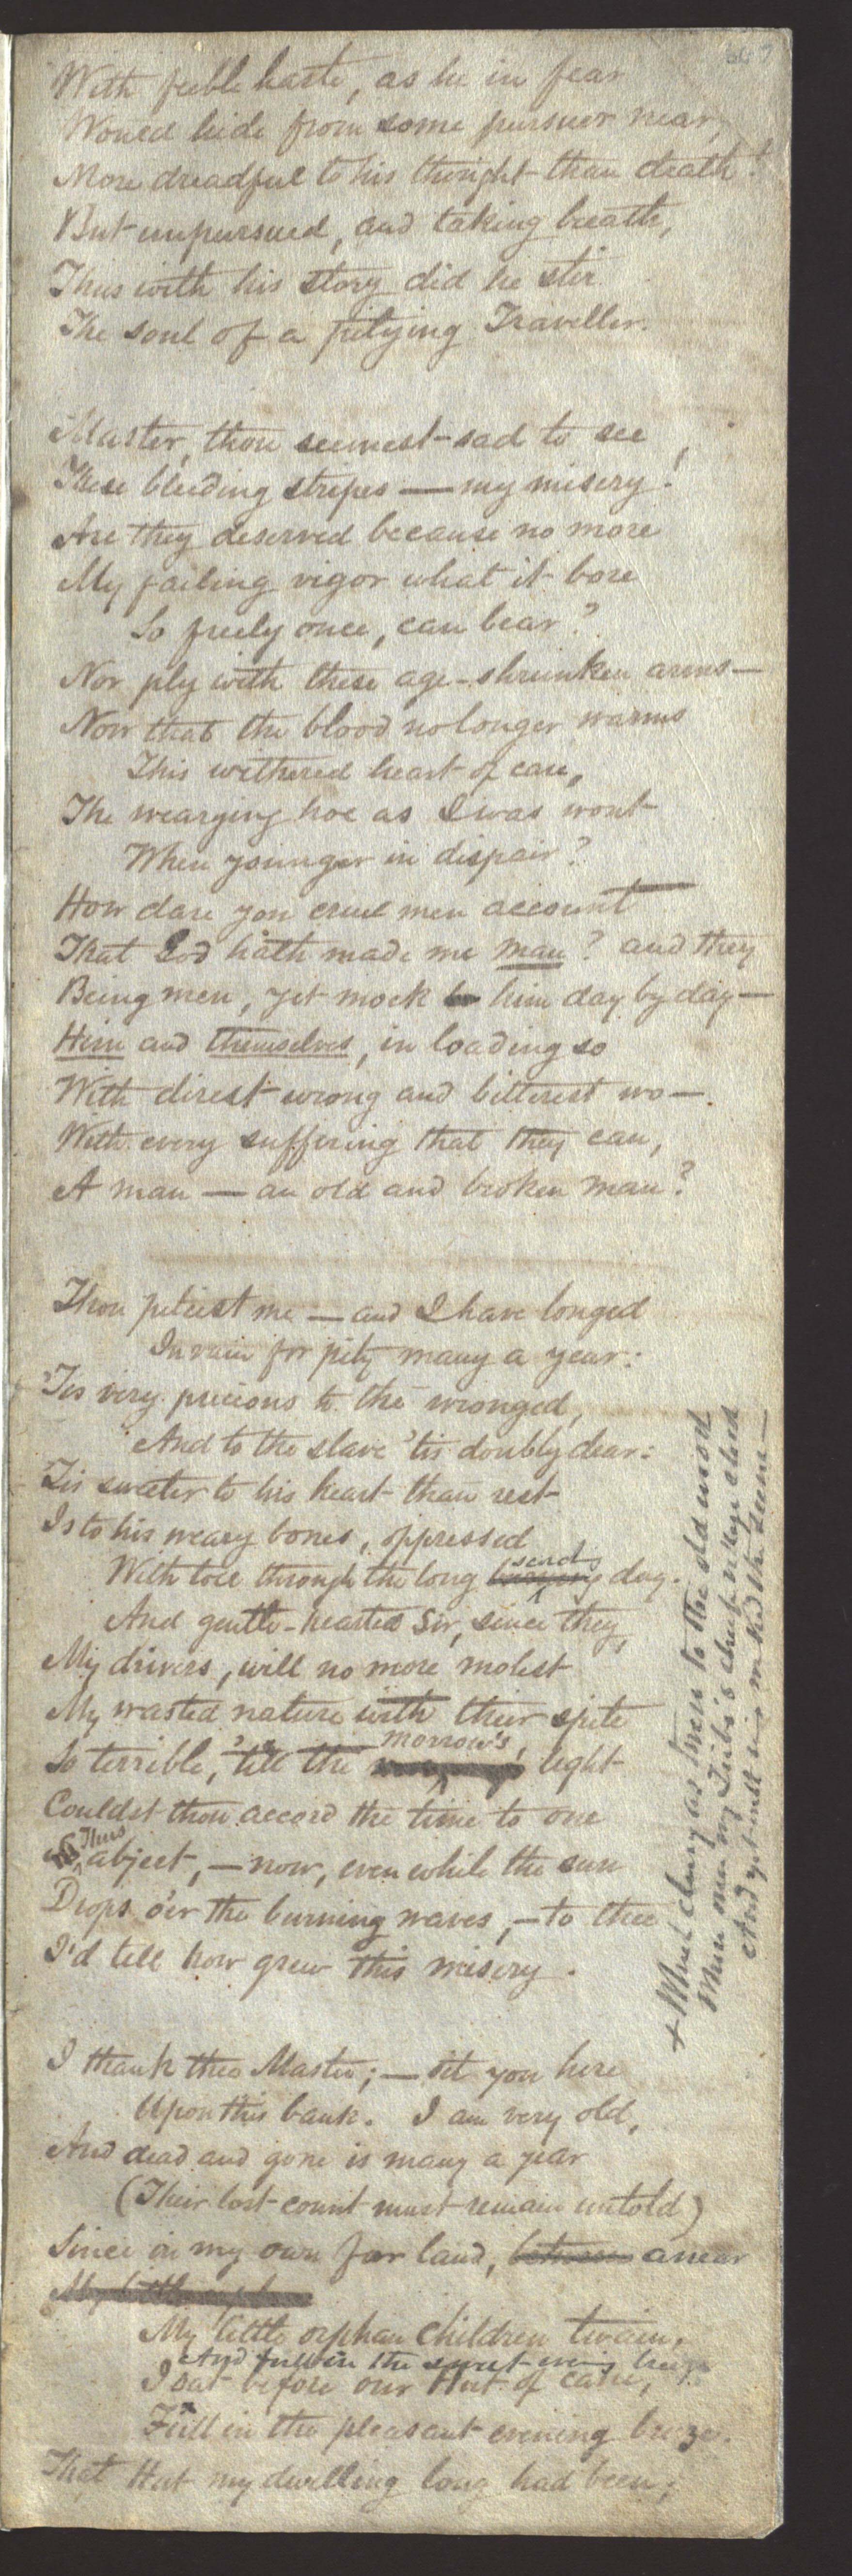 With feeble haste, as he in fear
Would hide from some pursuer near,
More dreadful to his thought than death!
But unpursued, and taking breath,
Thus with his story did he stir
The soul of a pitying Traveller.
Master, thou seemest sad to see
These bleeding stripes — my misery!
Are they deserved because no more
My failing vigor what it bore
So freely once, can bear?
Nor ply with these age-shrunken arms—
Now that the blood no longer warms
This withered heart of care,
The wearying hoe as I was wont
When younger in dispair?
How dare you cruel men account
That God hath made me man? and they
Being men, yet mock him day by day—
Him and themselves, in loading so
With direst wrong and bitterest wo—
With every suffering that they can,
A man — an old and broken man?
Thou pitiest me — and I have longed
In vain for pity many a year:
'Tis very precious to the wronged,
And to the slave 'tis doubly dear:
'Tis sweeter to his heart than rest
Is to his weary bones, oppressed
With toil through the long day.
And gentle-hearted Sir, since they,
My drivers, will no more molest
My wasted nature with their spite
So terrible, 'till the morrow's light
Couldst thou accord the time to one
Thus abject, — now, even while the sun
Drops o'er the burning waves, — to thee
I'd tell how grew this misery.
I thank thee Master; — sit you here
Upon this bank. I am very old,
And dead and gone is many a year
(Their lost count must remain untold)
Since in my own far land, anear
My little orphan children twain,
And full in the sweet evening breeze
I sat before our Hut of cane,
Full in the pleasant evening breeze.
That Hut my dwelling long had been;
+ What clung as trees to the old
When over my
And yet